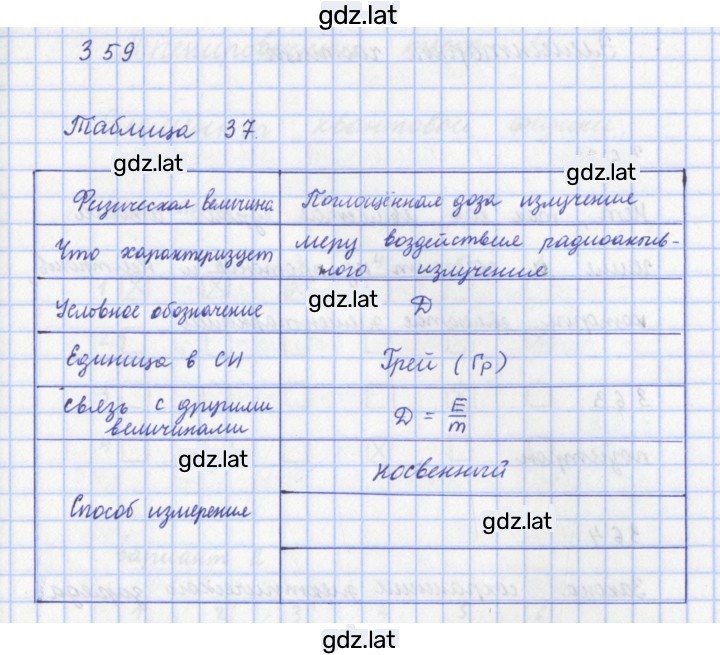 gdz.lat
359
Таблица 37.
gdz.lat
gdz.lat
Физическая величина Поглощённая доза излучение
Что характеризует меру воздействия радиоактив-
ного излучения
Условное обозначение gdz.lat D
Единица в СИ Грей (Гр)
связь с другими
величинами D = E/m
gdz.lat
косвенный
Способ измерения
gdz.lat
gdz.lat